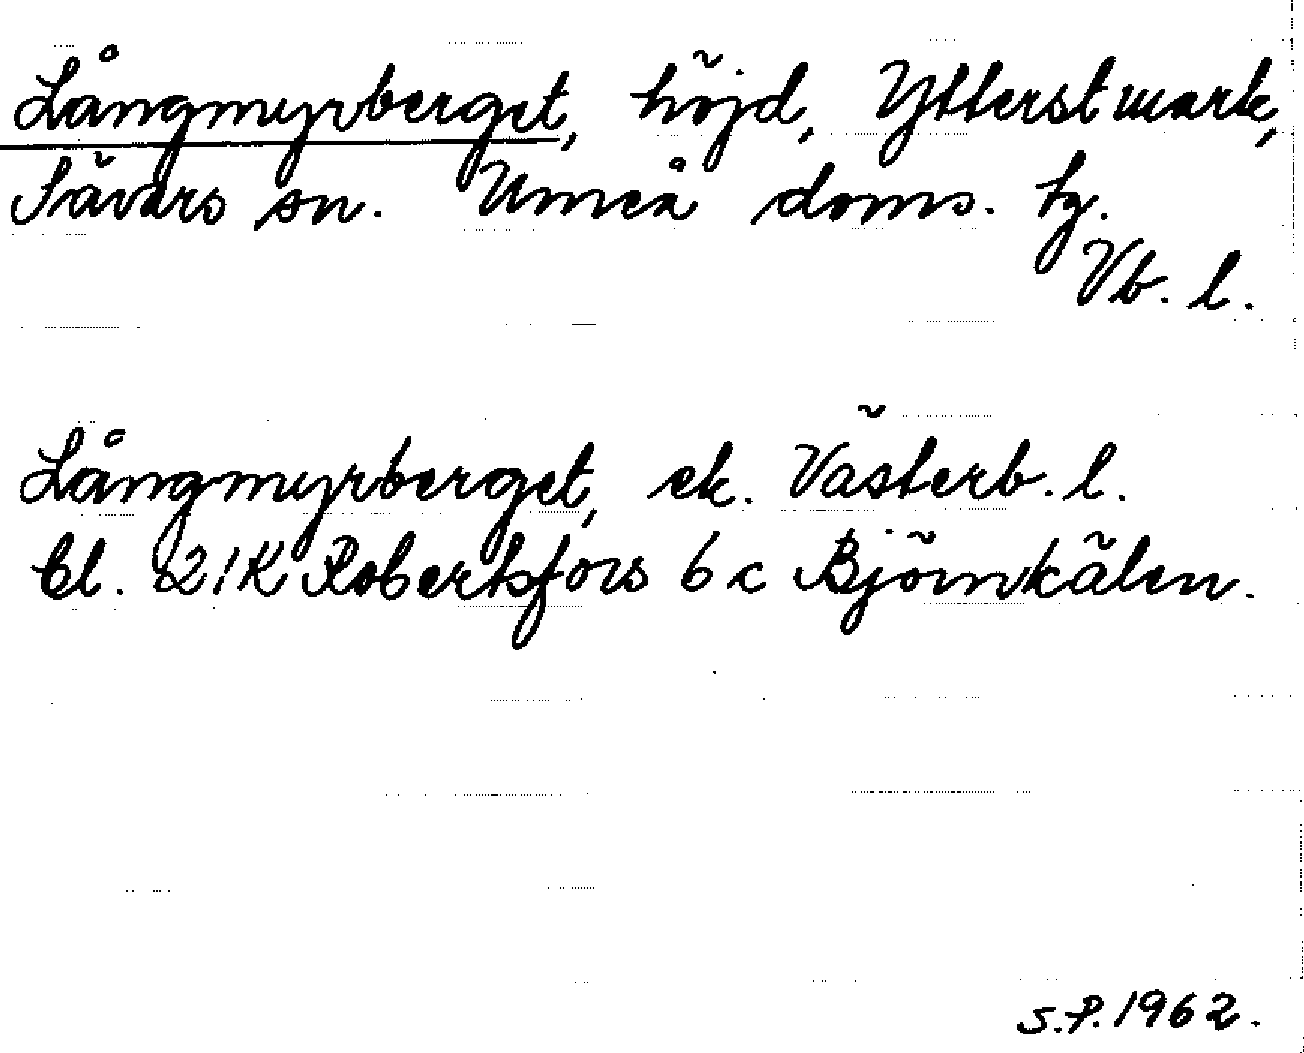 Långmyrberget, höjd, Ytterstmark,
Sävars sn. Umeå doms. tg.
Vb. l.
Långmyrberget, ek. Västerb. l.
Bl. 21K Robertsfors 6 c Björnkälen.
S.P. 1962.